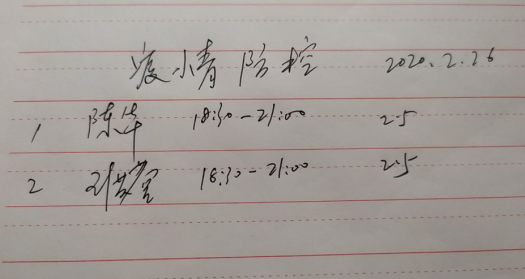 疫情防控 2020.2.26
1 陈华 18:30-21:00 2.5
2 刘 18:30-21:00 2.5